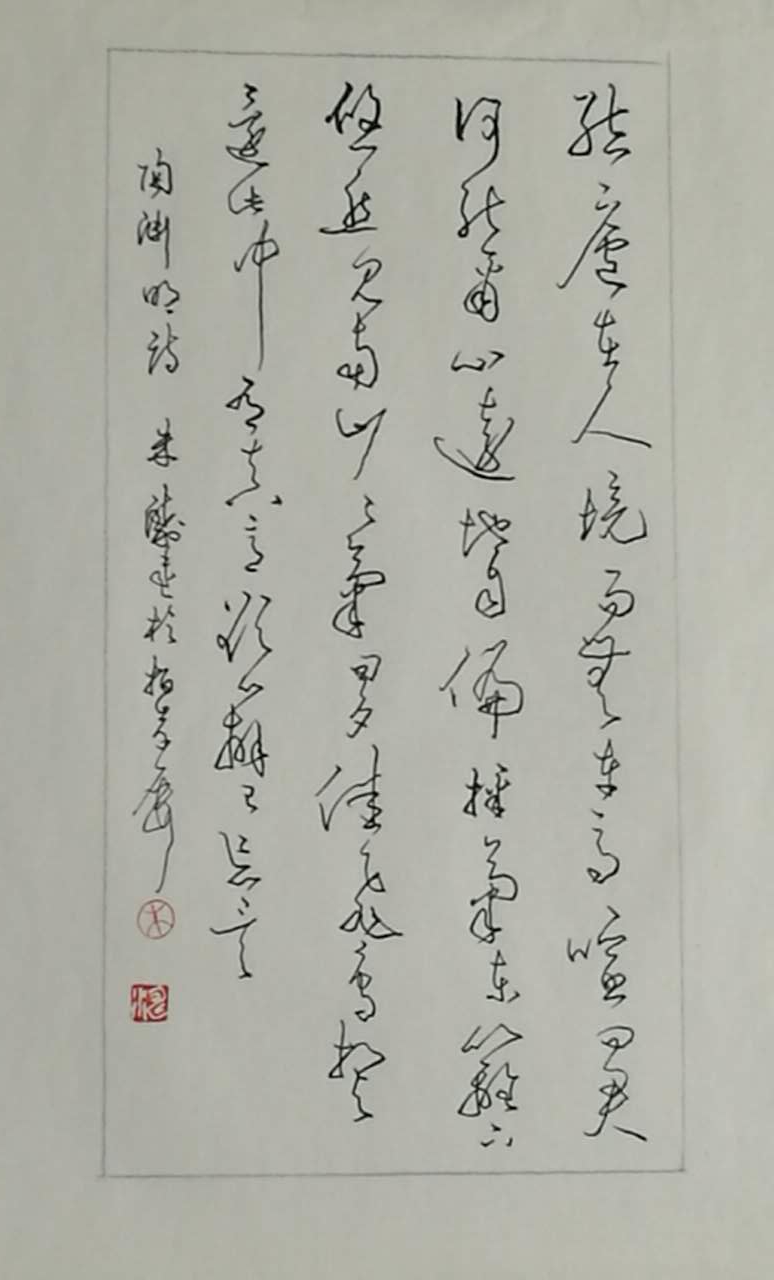 結廬在人境而無車馬喧問君
何能爾心遠地自偏採菊東籬下
悠然見南山々氣日夕佳飛鳥相與
還此中有真意欲辨已忘言
陶渊明詩 朱 書於